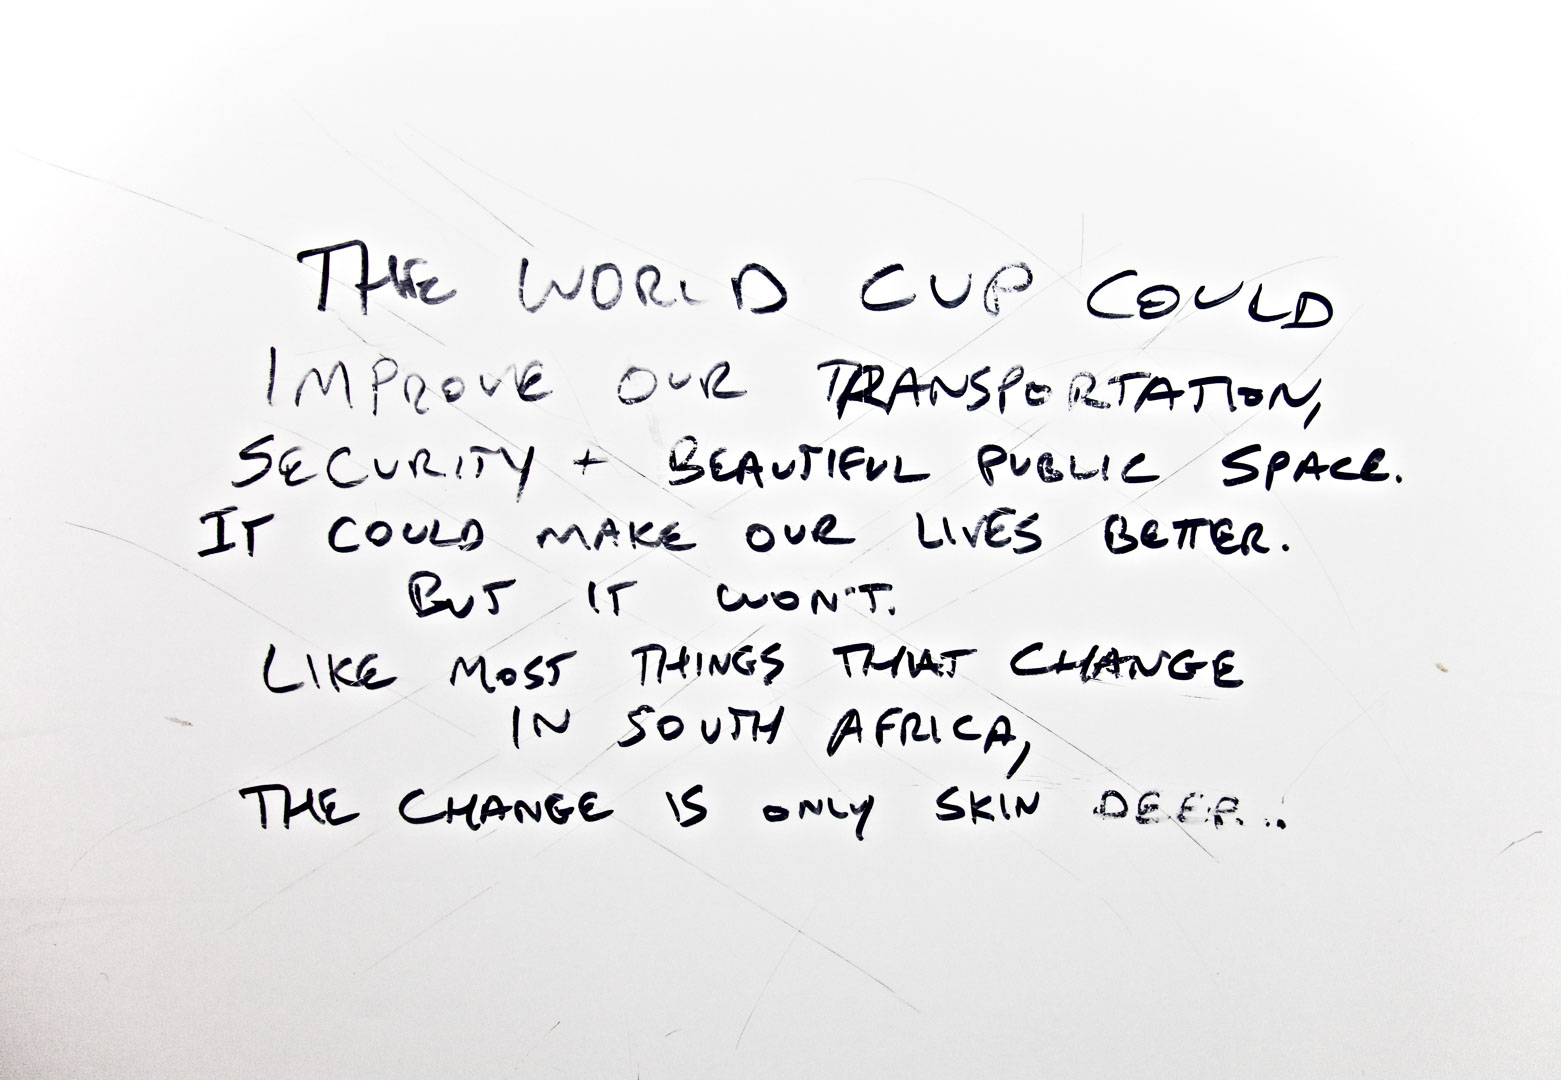 THE WORLD CUP COULD
IMPROVE OUR TRANSPORTATION,
SECURITY + BEAUTIFUL PUBLIC SPACE.
IT COULD MAKE OUR LIVES BETTER.
BUT IT WON'T.
LIKE MOST THINGS THAT CHANGE
IN SOUTH AFRICA,
THE CHANGE IS ONLY SKIN DEEP...